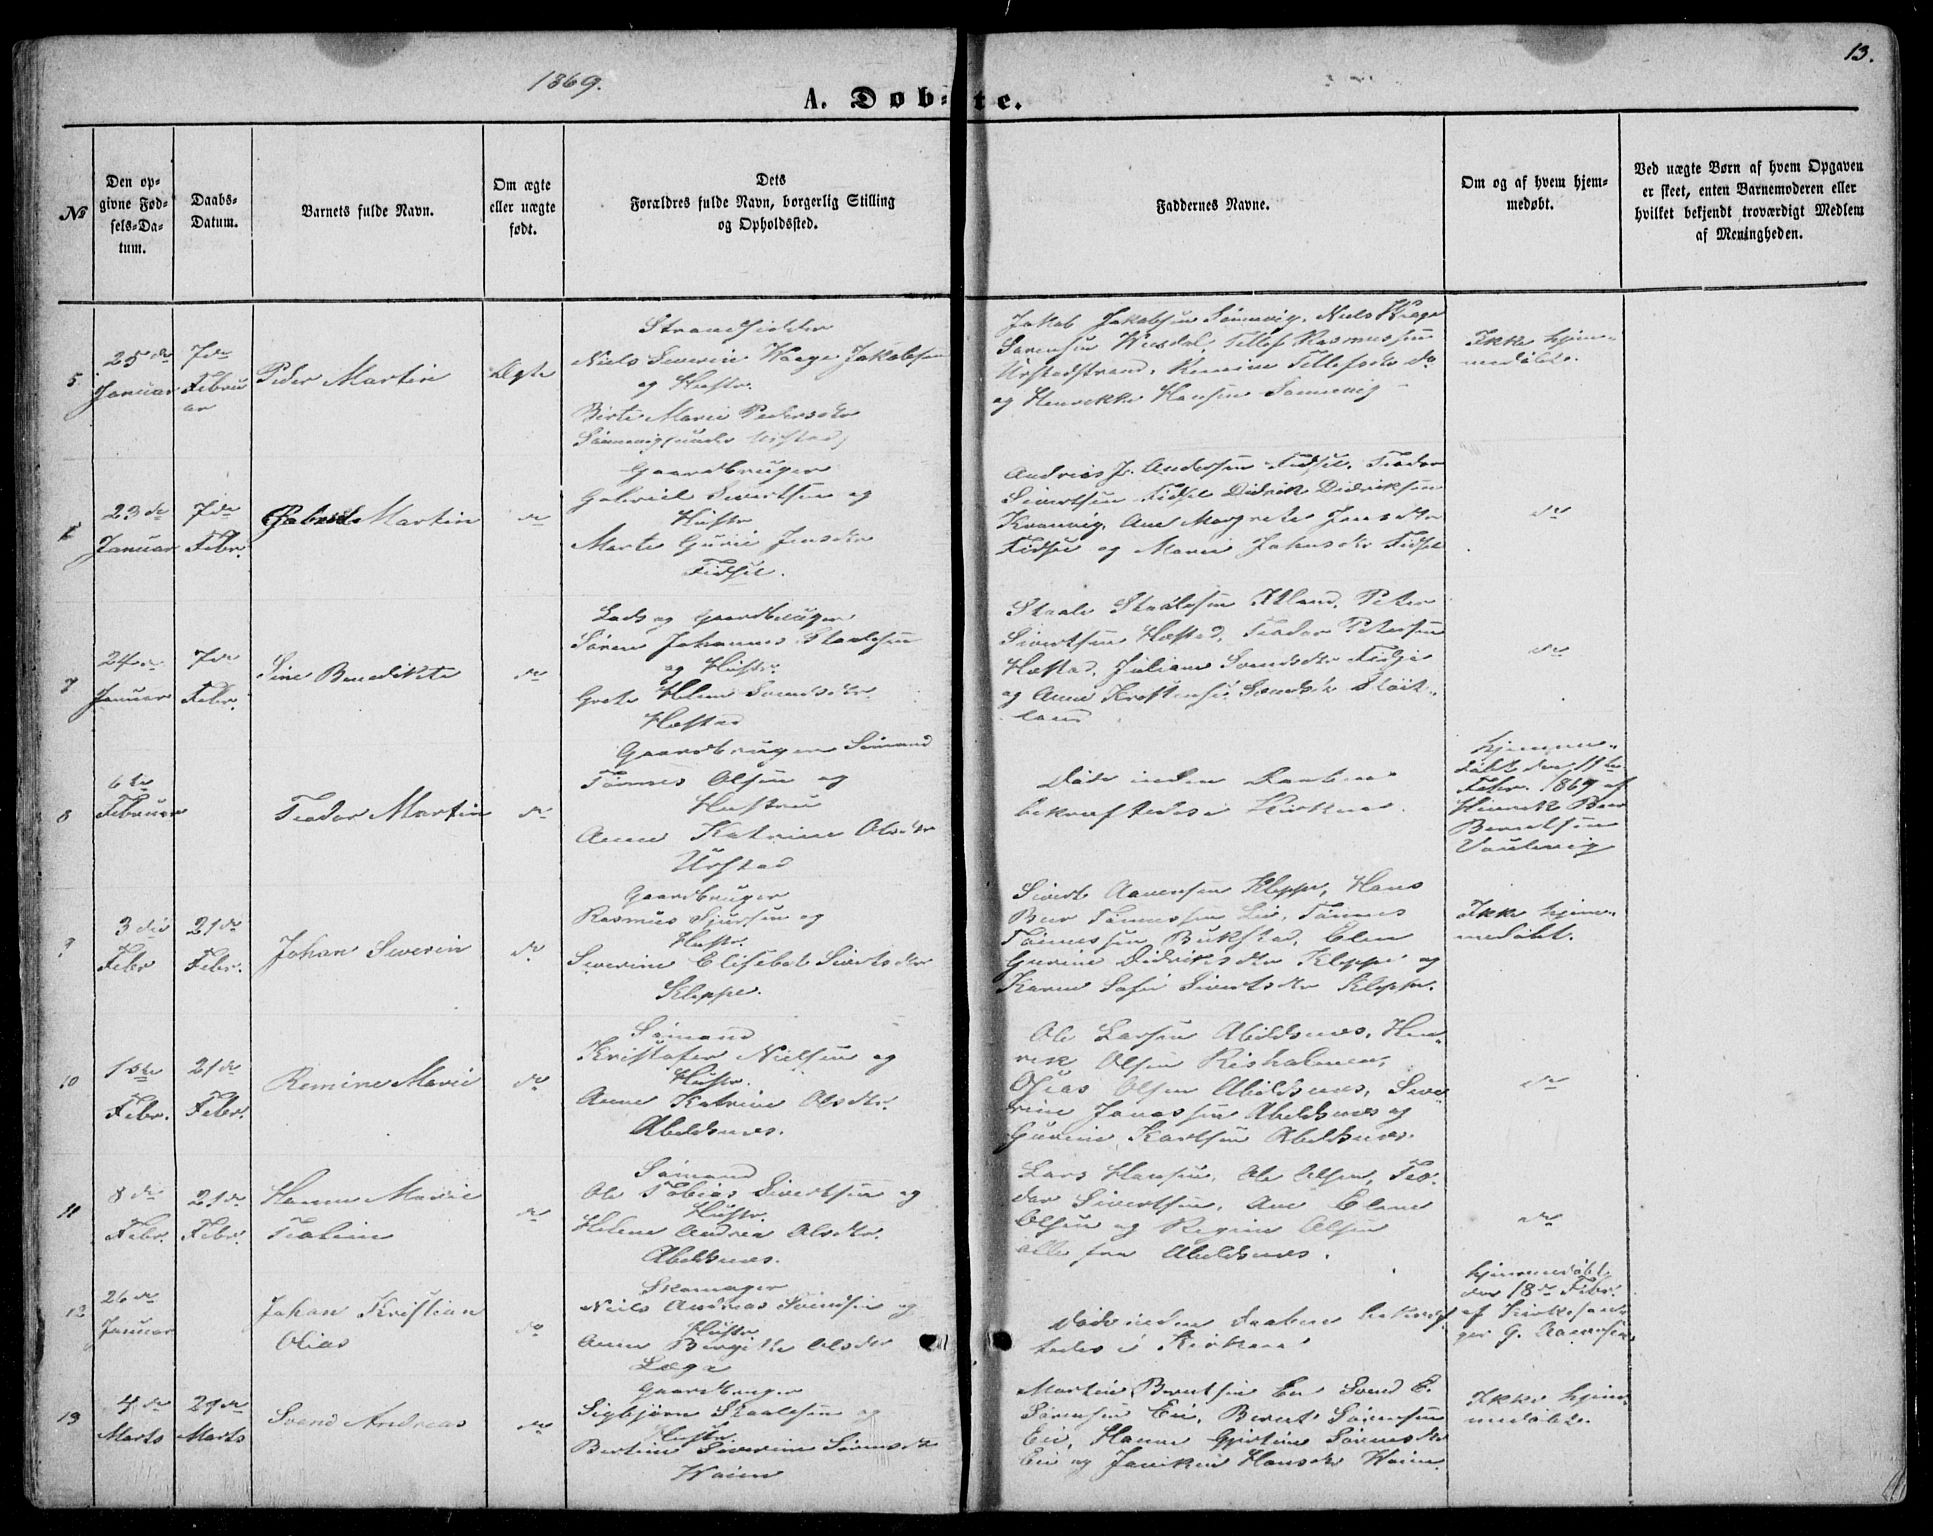 1869.
13.
A. Døbte.
№
Den opgivne Fødsels-Datum.
Daabs-Datum.
Barnets fulde Navn.
Om ægte eller uægte født.
Dets Forældres fulde Navn, borgerlig Stilling og Opholdssted.
Faddernes Navne.
Om og af hvem hjemmedøbt.
Ved uægte Børn af hvem Opgaven er skeet, enten Barnemoderen eller hvilket bekjendt troværdigt Medlem af Menigheden.
5
25de Januar
7de Februar
Peder Martin
Ægte
Strandsidder
Niels Severin Waage Jakobsen
og Hustr.
Birte Marie Pedersdtr
Sannevig (under Urstad)
Jakob Jakobsen Sannevig, Niels
Sørensen Tellef Rasmussen
Urstadstrand, Tellefsdtr do
og Henrikke Hansen Sannevig
Ikke hjem-
medøbt.
23de Januar
7de Febr.
Gabriel Martin
do
Gaardbruger
Gabriel Sivertsen og
Hustr
Marte Gurie Jensdtr
Fidsel.
Andreas J. Andersen Fidsel, Teodor
Sivertsen Fidsel Didrik Didriksen
Ane Margrete Jensdtr
Fidsel og Marie Jahnsdtr Fidsel
do
7
24de Januar
7de Febr.
Sine Benedikte
do
Lods og Gaardbruger
Søren Johannes Staalesen
og Hustr.
Grete Helene Svendsdtr.
Hæstad
Staale Staalesen Peter
Sivertsen Hæstad, Teodor Petersen
Hæstad, Juliane Svendsdtr
og Anne Svendsdtr
land
do
8
6te Februar
Teodor Martin
do
Gaardbruger Sømand
Tønnes Olsen og
Hustru
Anne Katrine Olsdtr
Urstad
Døde inden Daaben
bekræftedes i Kirken.
hjemme-
døbt den 11te
Febr. 1869 af
Henrik Beer
Berntsen
9
3die Febr
21de Febr.
Johan Severin
do
Gaardbruger
Rasmus Sjursen og
Hustr.
Severine Elisabet Sivertsdtr
Kleppe.
Sivert Aanensen Kleppe, Hans
Beer Tønnessen Lie, Tønnes
Tønnessen Bukstad, Elen
Gurine Didriksdtr Kleppe og
Karen Sofie Sivertsdtr Kleppe.
Ikke hjem-
medøbt.
10
15de Febr.
21de Febr.
Remine Marie
do
Sømand
Kristofer Nielsen og
Hustr.
Anne Katrine Olsdtr.
Abeldsnæs.
Ole Larsen Abeldsnæs, Hen-
rik Olsen Risholmen,
Osias Olsen Abeldsnæs, Seve-
rine Janassen Abeldsnæs og
Gurine Karlsen Abeldsnæs.
do
11
8de Febr.
21de Febr.
Hanne Marie
Teoline
do
Sømand
Ole Tobias Sivertsen og
Hustr.
Helene Andrea Olsdtr.
Abeldsnæs.
Lars Hansen, Ole Olsen, Teo-
dor Sivertsen, Ane Elene
Olsen og Regine Olsen
alle fra Abeldsnæs.
do
12
26de Januar
Johan Kristian
Olias
do
Skomager
Niels Andreas Svendsen og
Hustr.
Anne Birgitte Olsdtr
Døde inden Daaben bekræf-
tedes i Kirken
hjemmedøbt
den 18de Febr.
af Kirkesan-
ger G. Aanensen
13
4de Marts
29de Marts
Svend Andreas
do
Gaardbruger
Sigbjørn Staalesen og
Hustr.
Bertine Severine Sørensdtr
Martin Berntsen Eie Svend E.
Sørensen Eie, Bernt Sørensen
Eie, Hanne Gjertine Sørensdtr
Eie og Hansdtr
Ikke hjem-
medøbt.